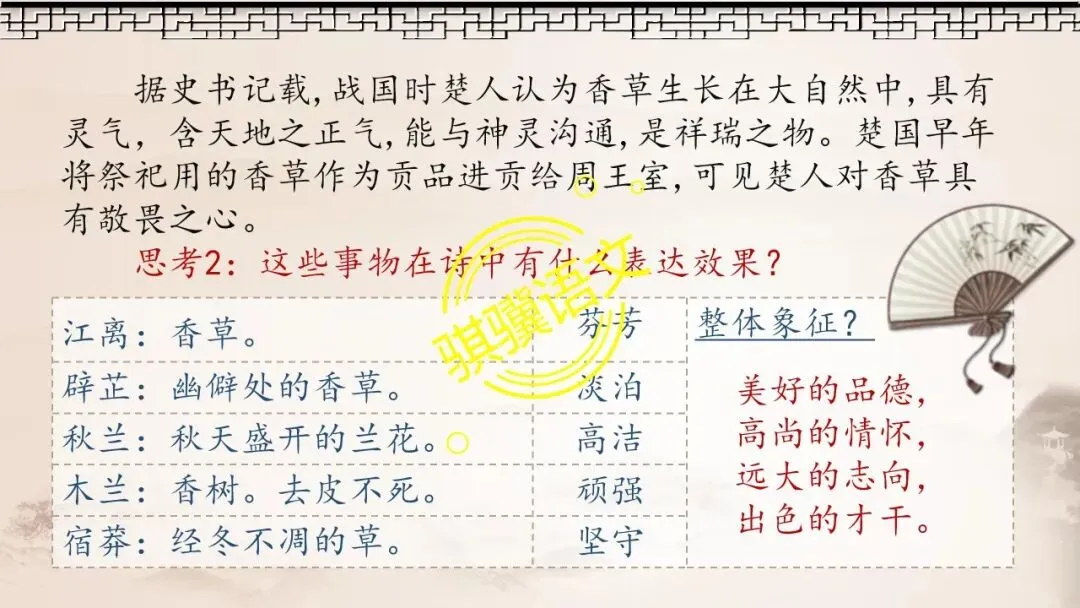 据史书记载,战国时楚人认为香草生长在大自然中,具有
灵气，含天地之正气,能与神灵沟通,是祥瑞之物。楚国早年
将祭祀用的香草作为贡品进贡给周王室,可见楚人对香草具
有敬畏之心。
思考2：这些事物在诗中有什么表达效果？
江离：香草。 芬芳
辟芷：幽僻处的香草。 淡泊
秋兰：秋天盛开的兰花。 高洁
木兰：香树。去皮不死。 顽强
宿莽：经冬不凋的草。 坚守
整体象征？
美好的品德，
高尚的情怀，
远大的志向，
出色的才干。
骐骥语文